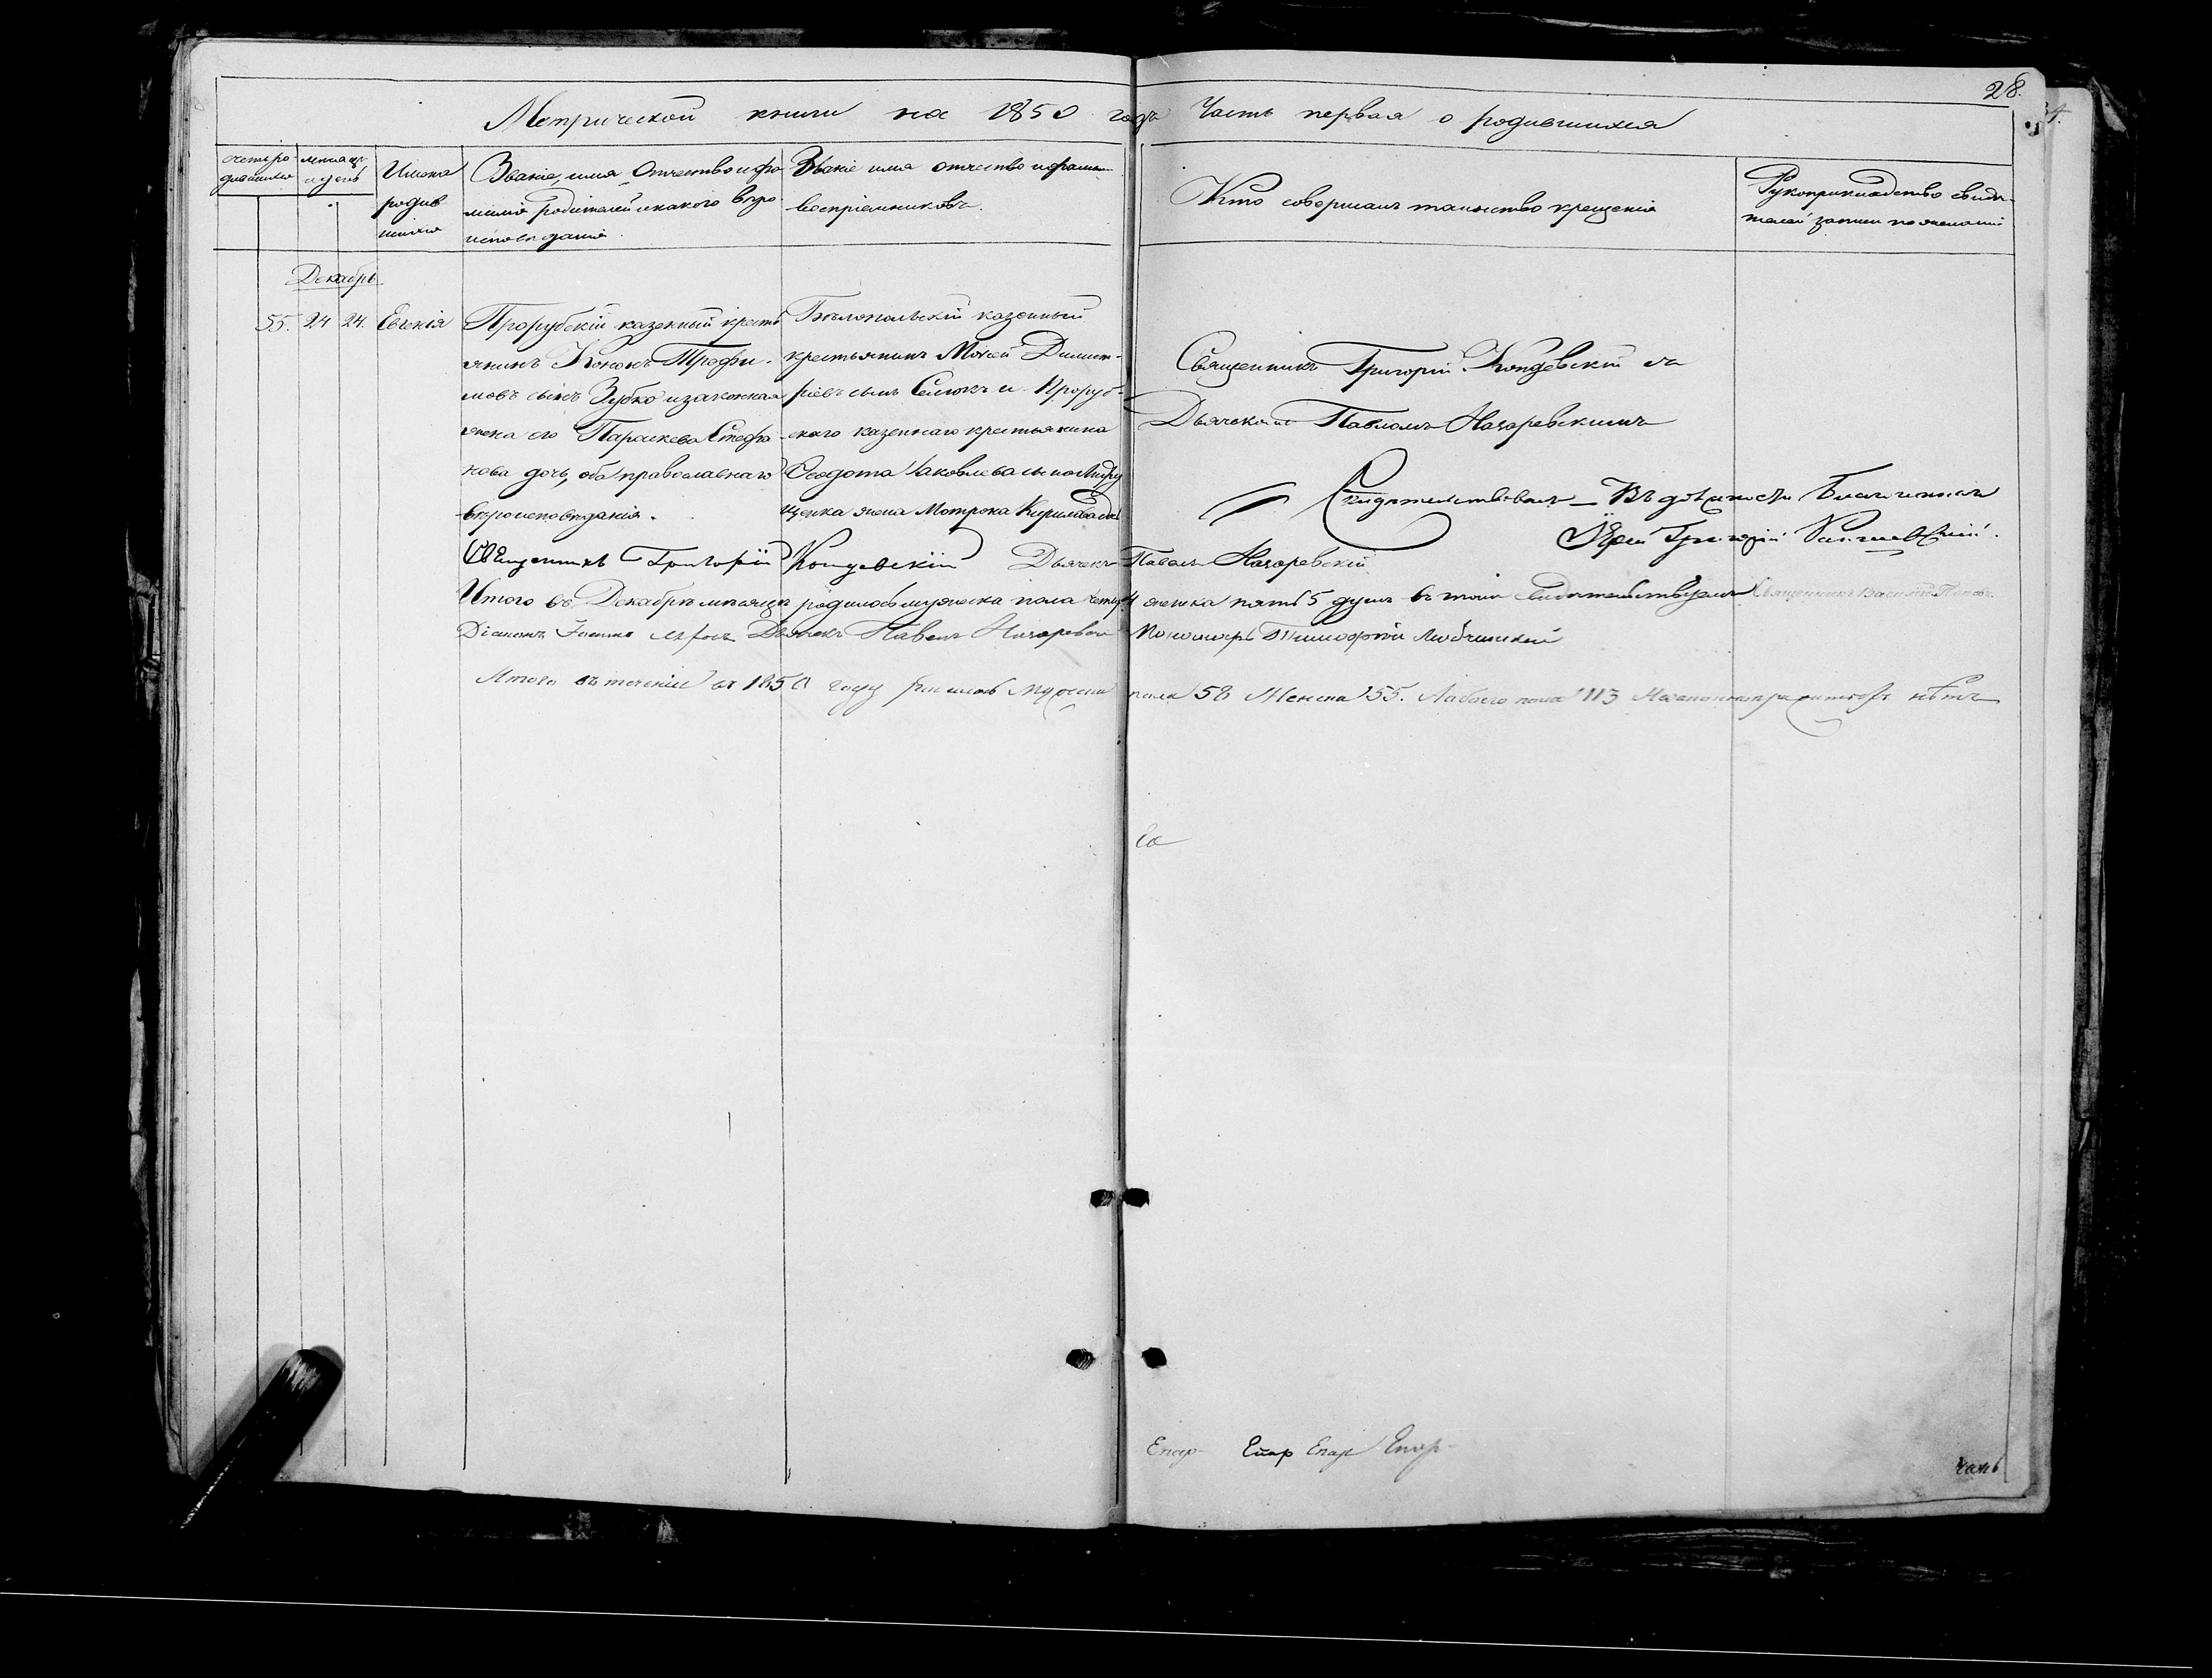 28.
Метрической книги на 1850 годъ Часть первая о родившихся
счетъ ро-
дившихся
месяцъ
и день
Имена
родив
шихся
Званіе, имя, Отчество и фа
милія родителей и какого веро
исповеданія.
Званіе имя отчество и фамил
воспріемниковъ.
Кто совершалъ таинство крещенія
Рукоприкладство свиде-
телей записи по желанію
Декабрь
55. 24 24. Евгенія
Прорубскій казенный кресть
янинъ Кононъ Трофи-
мовъ сынъ Зубко и законная
жена его Параскева Стефа
нова дочь, оба православнаго
вероисповеданія.
Белопольскій казенный
крестьянинъ Моѵсей Димит-
ріевъ сынъ и Проруб-
скаго казеннаго крестьянина
Ѳеодота Іаковлева сына
щенка жена Мотрона Кирилова дочь
Священникъ Григорій Кондевскій съ
Дьячкомъ Павломъ Назаревскимъ
Свидетельствовалъ Въ должности Благочиннаго
Іерей Григорій
Священникъ Григорій Кондевскій Дьячекъ Павелъ Назаревскій
Итого въ Декабре месяце родилось мужеска пола четыре 4 женска пять 5 душъ въ томъ свидетельствуемъ Священникъ Василій Поповъ
Діаконъ Дьячекъ Павелъ Назаревскій Пономарь Тимофей
Итого въ теченіи въ 1850 году родилось Мужеска пола 58 Женска 55. Обоего пола 113 нетъ
Ев
Епар- Епар Епар Епар-
часть